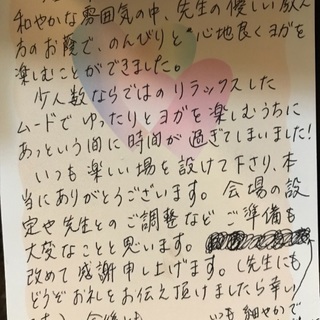 和やかな雰囲気の中、先生の優しい
方のお蔭で、のんびりと心地良くヨガを
楽しむことができました。
少人数ならではのリラックスした
ムードでゆったりとヨガを楽しむうちに
あっという間に時間が過ぎてしまいました!
いつも楽しい場を設けて下さり、本
当にありがとうございます。会場の設
定や先生とのご調整などご準備も
大変なことと思います。
改めて感謝申し上げます。(先生にも
どうぞお礼をお伝え頂けましたら幸い
いつも細やかで